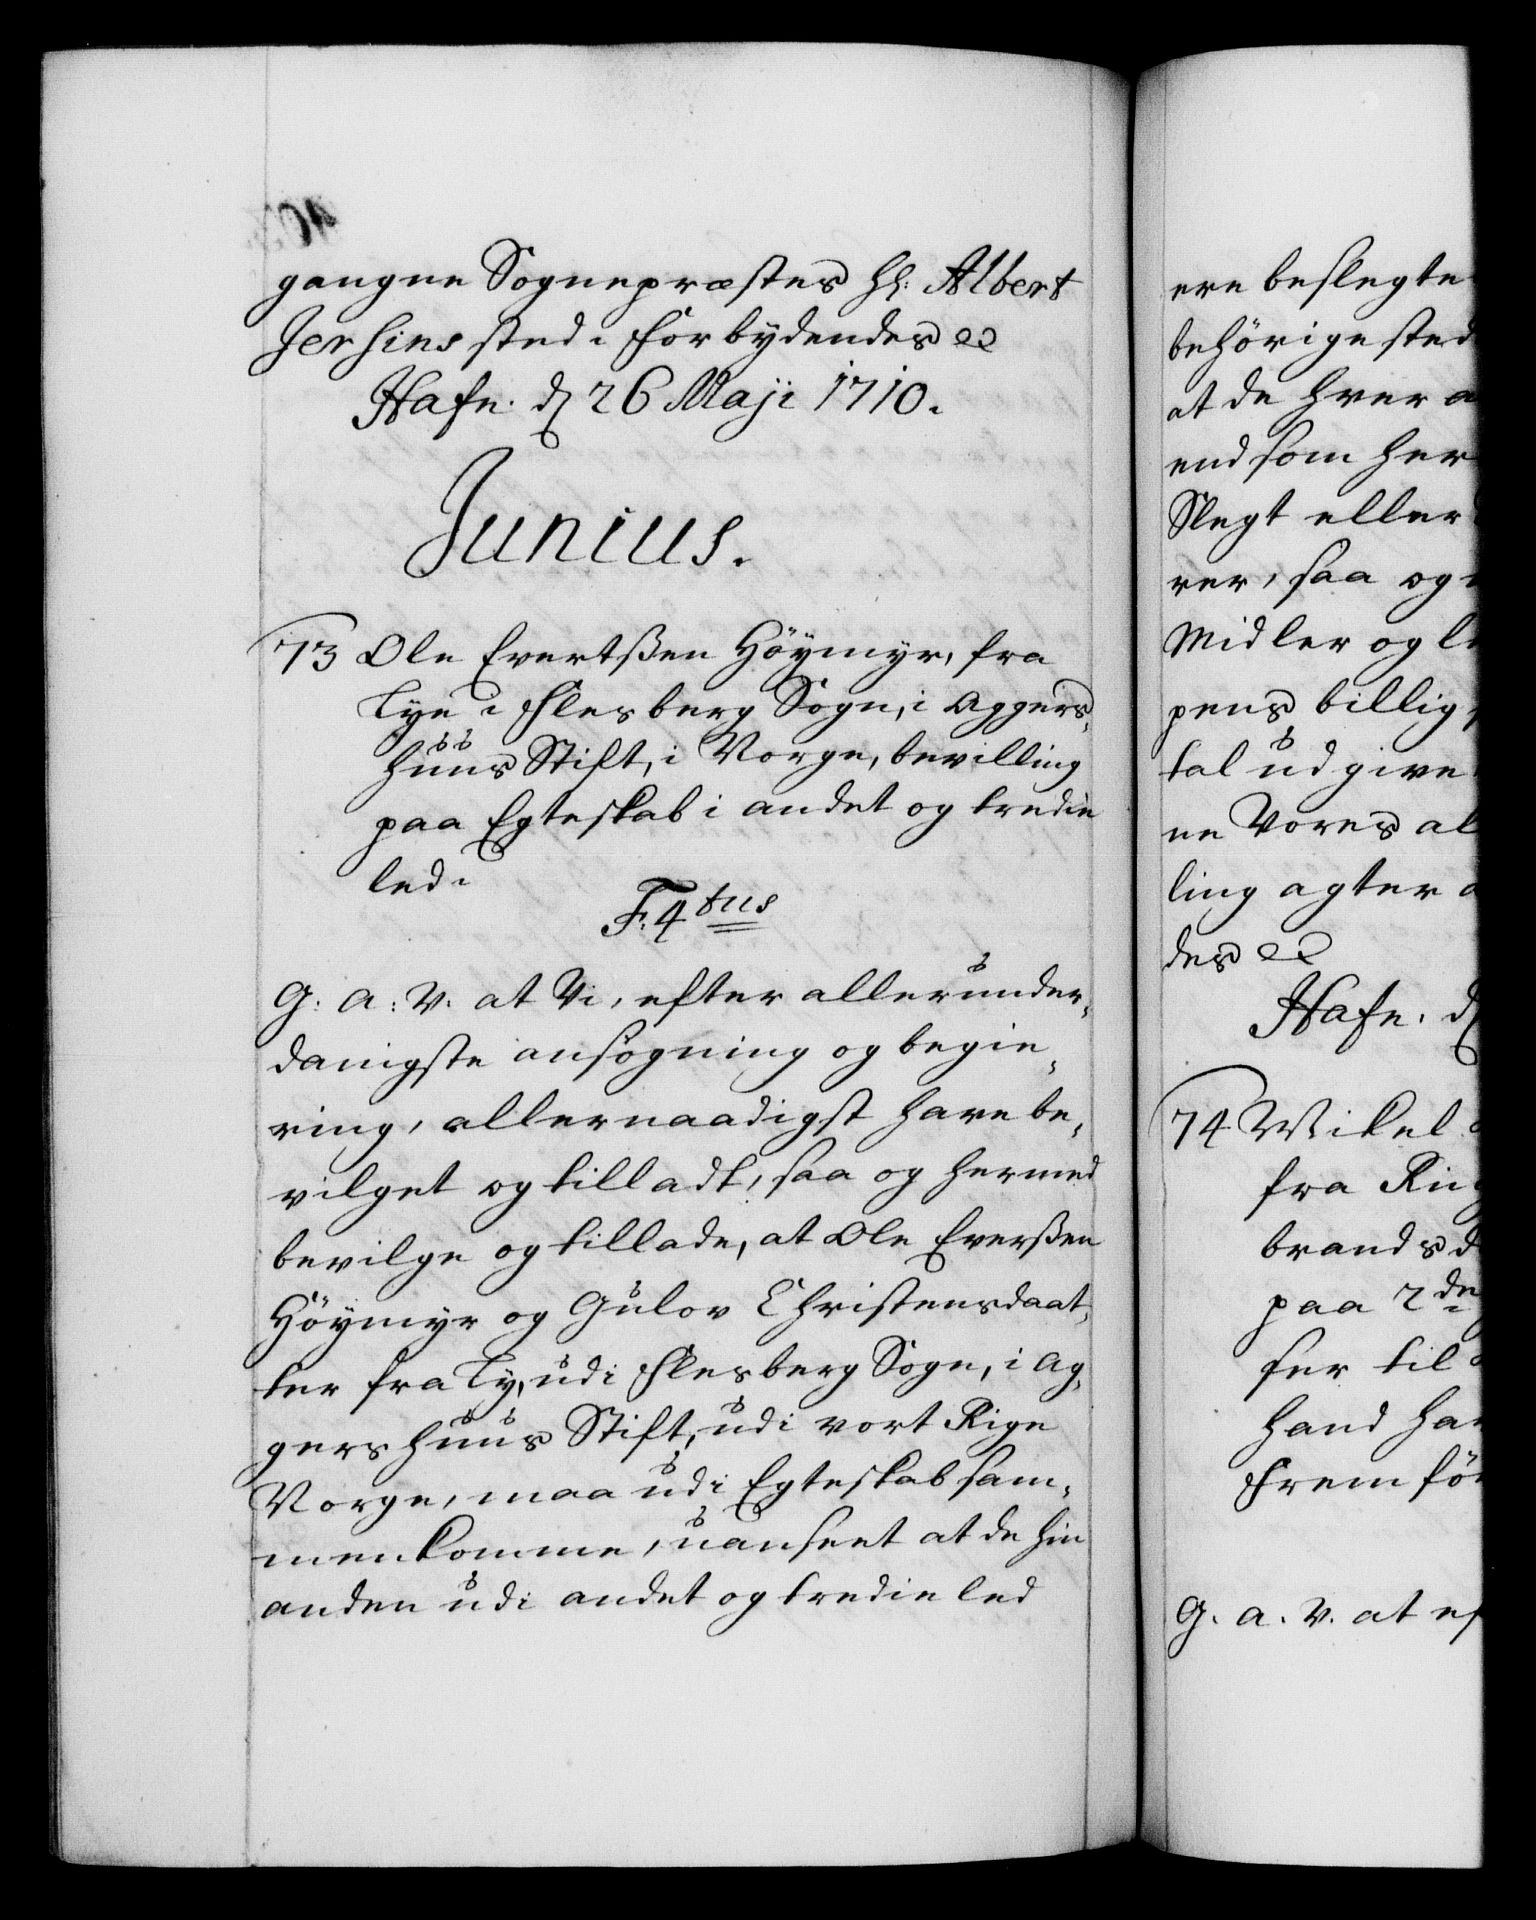 gangne Sognepræstes Hr: Albert
Jersins sted. Forbydendes etc
Hafn. d 26 Maji 1710.
Junius.
73 Ole Evertßen Höÿmÿr, fra
Lye i Flesberg Sogn, i Aggers-
huus Stift, i Norge, bevilling
paa Egteskab i andet og tredie
led.
F. 4tus
G: A: V. at Vi, efter allerunder-
danigste ansøgning og begie-
ring, allernaadigst have be-
vilget og tilladt, saa og hermed
bevilge og tillade, at Ole Everßen
Höÿmÿr og Gulov Christensdaat-
ter fra Ly, udi Flesberg Sogn, i Ag-
gershuus Stift, udi vort Rige
Norge, maa udi Egteskab sam-
menkomme, uanseet at de hin
anden udi andet og tredie led
ere beslegte
behörige sted
at de hver
end som her
Slegt eller
rer, saa og
Midler og
pens billig
tal udgive
ne Vores al
ling agter
des etc
Hafn. d
74 Mikel
fra Ring
brands d
paa 2de
ser til
hand ha
Frem fö
G. A. V. at ef